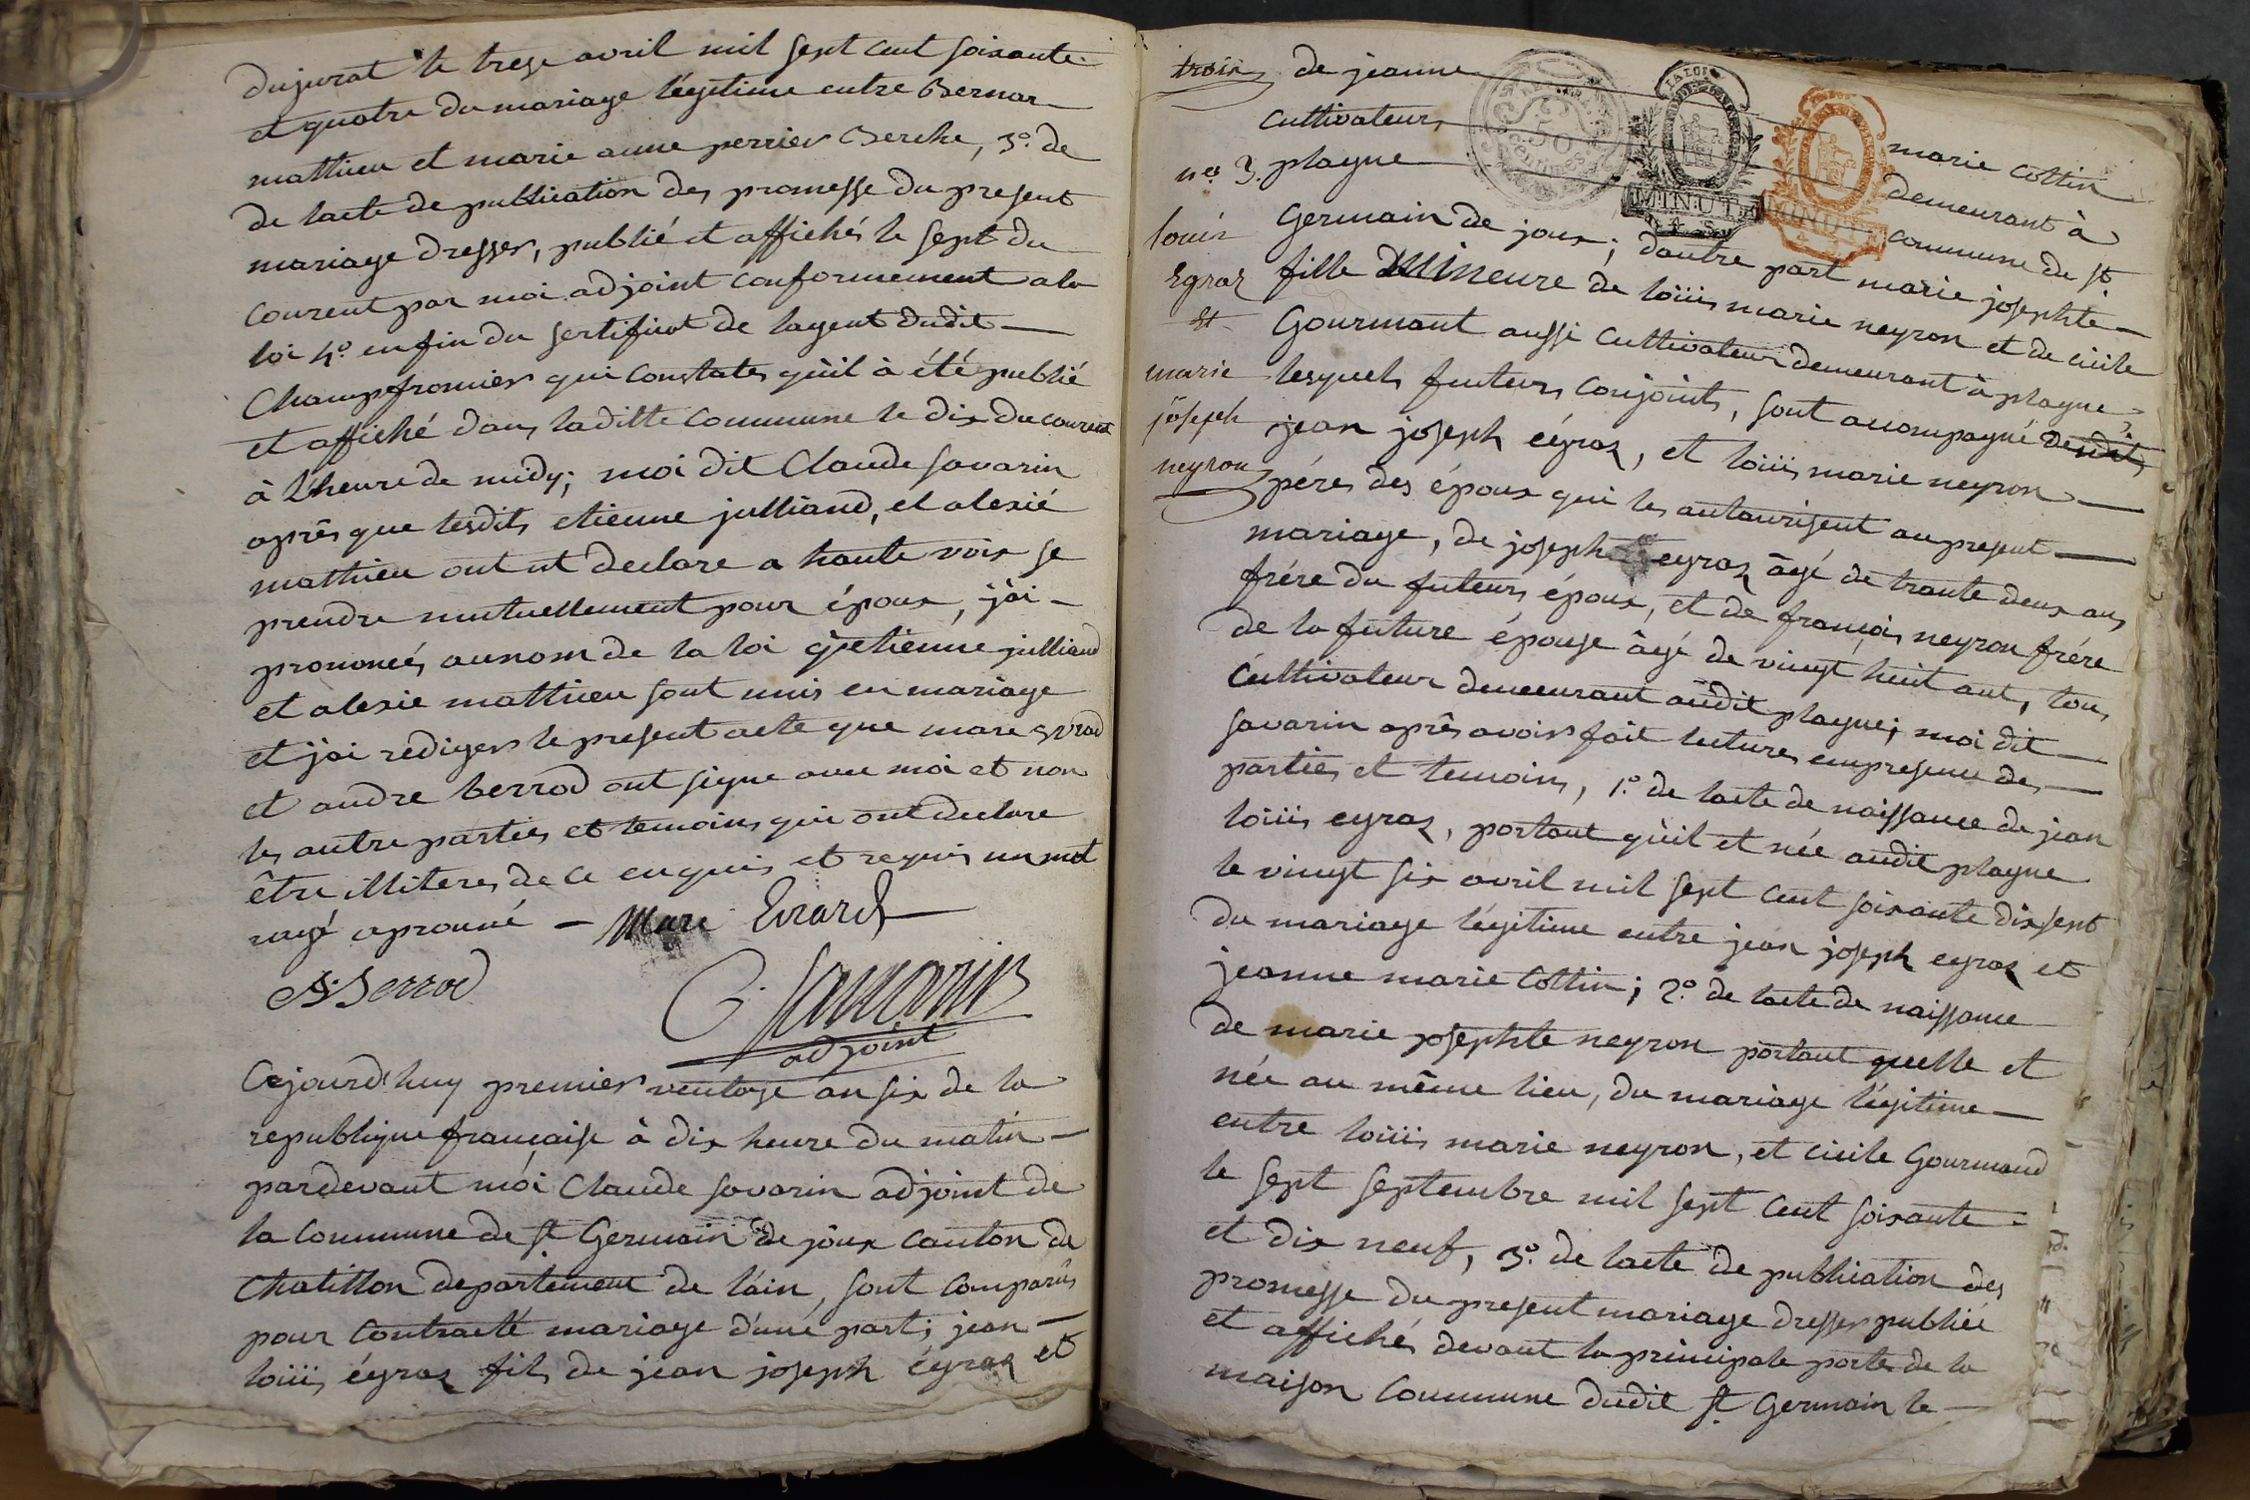 dujurat le treze avril mil sept cent soixante
et quatre du mariage légitime entre Bernar
mathieu et marie anne perrier Berche, 3.º de
de lacte de publication des promesse du present
mariage dresser, publié et affichés le sept du
courent par moi adjoint conformement a la
loi 4º. enfin du sertificat de lagent dudit
Champfromier qui constates qùil à été publié
et affiché dans laditte commune le dix du courent
à l'heure de midy; moi dit Claude Savarin
après que lesdits etienne julliand, et alexié
mathieu ont et declare a haute voix se
prendre mutuellement pour époux, jài
prononcés aunom de la loi q'etienne julliand
et alexie mathieu sont unis en mariage
et jai rediger le present acte que marc evrad
et andre berrod ont signe avec moi et non
les autre parties et temoins qui ont declare
être illiteres de ce enquis et requis un mot
rayé aprouvé — Marc Evrard
A Berrod
C. Savarin
adjoint
Cejourd'huy premier ventose an six de la
republique française à dix heure du matin
pardevant mói Claude Savarin adjoint de
la commune de St Germain de joux canton de
Chatillon departement de l'ain, sont comparûs
pour contracté mariage d'uné part; jean
loiiis éyraz fils de jean joseph éyraz et
trois
nes 3.
louis
Egraz
et
marie
joseph
neyron
de jeanne marie Cottin
cultivateurs demeurant à
plagne commune de St
Germain de joux; dautre part marie josephte
fille mineure de loiiis marie neyron et de cicile
Gourmant aussi cultivateur demeurant à plagne;
lesquels futurs conjoints, sont accompagné de
jean joseph éyraz, et loiiis marie neyron
péres des époux qui les autaurisent au present
mariage, de joseph eyraz âgé de trante deux ans
frére du futeurs époux, et de françois neyron frére
de la future épouse âgé de vingt huit ant, tous
Cultivateur demeurant audit plagne; moi dit
savarin après avoir fait lecture, empresence des
parties et temoins, 1.º de lacte de naissance de jean
loiiis eyraz, portant qùil et née audit plagne
le vingt six avril mil sept cent soixante dixsept
du mariage légitime entre jean joseph eyraz et
jeanne marie Cottin; 2.º de lacte de naissance
de marie josephte neyron portant quelle et
née au même lieu, du mariage légitime
entre loiiis marie neyron, et cicile Gourmand
le sept septembre mil sept cent soixante
et dix neuf, 3.º de lacte de publication des
promesse du present mariage dresser publiée
et affichés devant la principale porte de la
maison commune dudit St Germain le
50
centimes
LA LOI
MINUTE
MINUTE